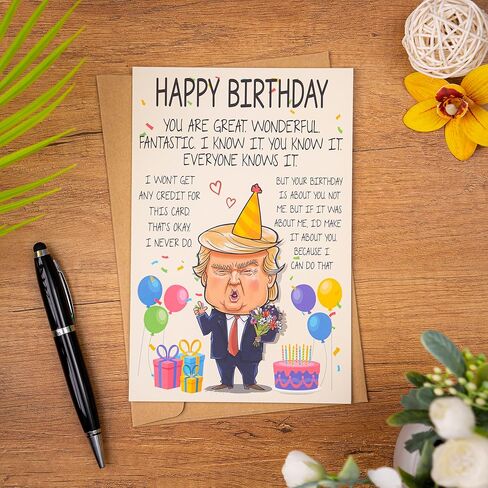 HAPPY BIRTHDAY
YOU ARE GREAT. WONDERFUL.
FANTASTIC. I KNOW IT. YOU KNOW IT.
EVERYONE KNOWS IT.
I WON'T GET
ANY CREDIT FOR
THIS CARD.
THAT'S OKAY.
I NEVER DO.
BUT YOUR BIRTHDAY
IS ABOUT YOU. NOT
ME. BUT IF IT WAS
ABOUT ME, I'D MAKE
IT ABOUT YOU.
BECAUSE I
CAN DO THAT